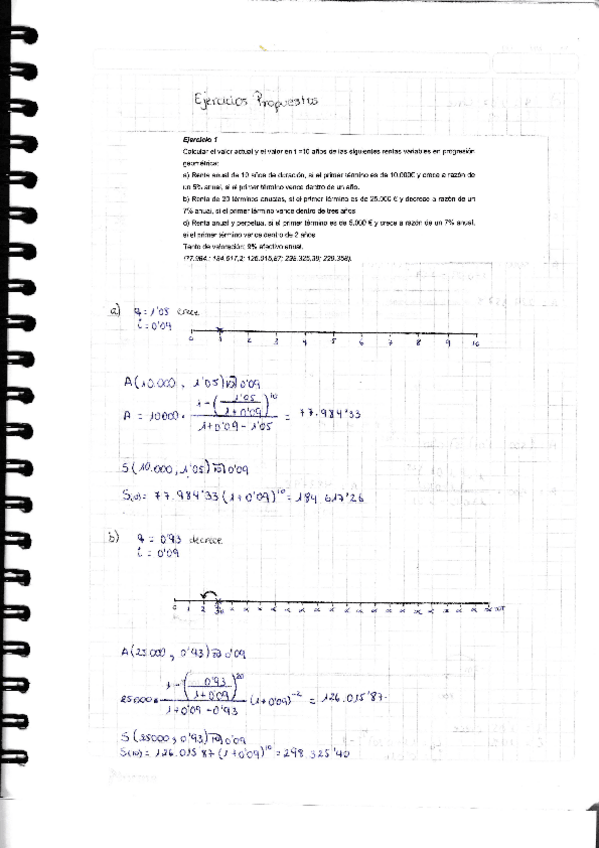 Ejercicios Propuestos
Ejercicio 1
Calcular el valor actual y el valor en t =10 años de las siguientes rentas variables en progresión
geométrica:
a) Renta anual de 10 años de duración, si el primer término es de 10.000€ y crece a razón de
un 5% anual, si el primer término vence dentro de un año.
b) Renta de 20 términos anuales, si el primer término es de 25.000 € y decrece a razón de un
7% anual, si el primer término vence dentro de tres años
c) Renta anual y perpetua, si el primer término es de 5.000 € y crece a razón de un 7% anual,
si el primer término vence dentro de 2 años
Tanto de valoración: 9% efectivo anual.
a) q = 1'05 crece
i = 0'09
0 1 2 3 4 5 6 7 8 9 10
A(10.000, 1'05)10¬0'09
A = 10000 · (1-(1'05/(1+0'09))^10)/(1+0'09-1'05) = 77.984'33
S(10.000, 1'05)10¬0'09
S(10) = 77.984'33 (1+0'09)^10 = 184.617'26
b) q = 0'93 decrece
i = 0'09
0 1 2
A(25.000, 0'93)20¬0'09
25000 · (1-(0'93/(1+0'09))^20)/(1+0'09-0'93) (1+0'09)^-2 = 126.015'87
S(25000, 0'93)¬0'09
S(10) = 126.015'87 (1+0'09)^10 = 298.325'40